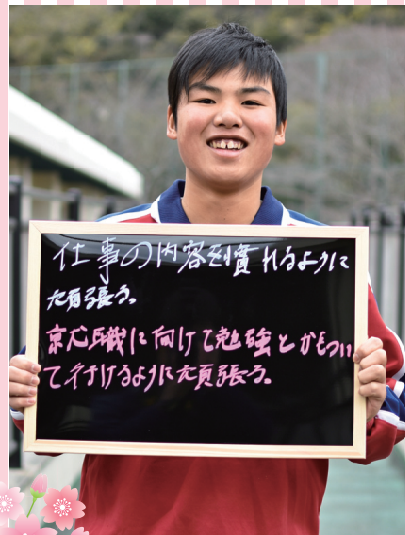 仕事の内容を慣れるように
頑張る。
就職に向けて勉強とかもつい
て行けるように頑張る。